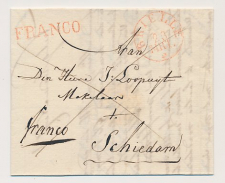 FRANCO
Aan
Den Heere J: Loopuyt
Makelaar
+
franco Schiedam